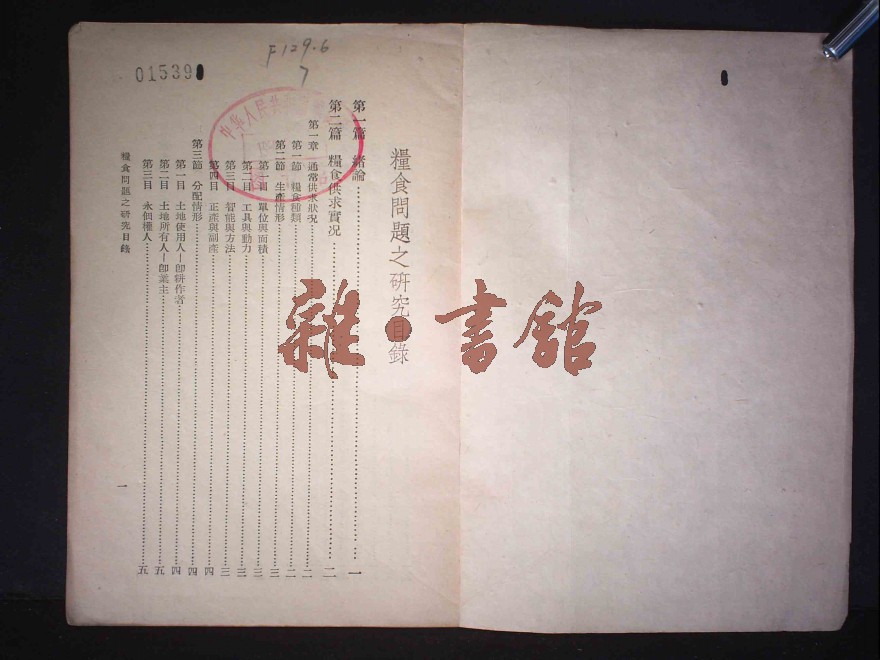 糧食問題之研究目錄
第一篇 緒論…………一
第二篇 糧食供求實況…………二
第一章 通常供求狀況…………二
第一節 糧食種類…………二
第二節 生產情形…………三
第一目 單位與面積…………三
第二目 工具與動力…………三
第三目 智能與方法…………三
第四目 正產與副產…………四
第三節 分配情形…………四
第一目 土地使用人—卽耕作者…………四
第二目 土地所有人—卽業主…………五
第三目 永佃權人…………五
糧食問題之研究目錄
一
01539
F129.6
7
中华人民共
雜·書館